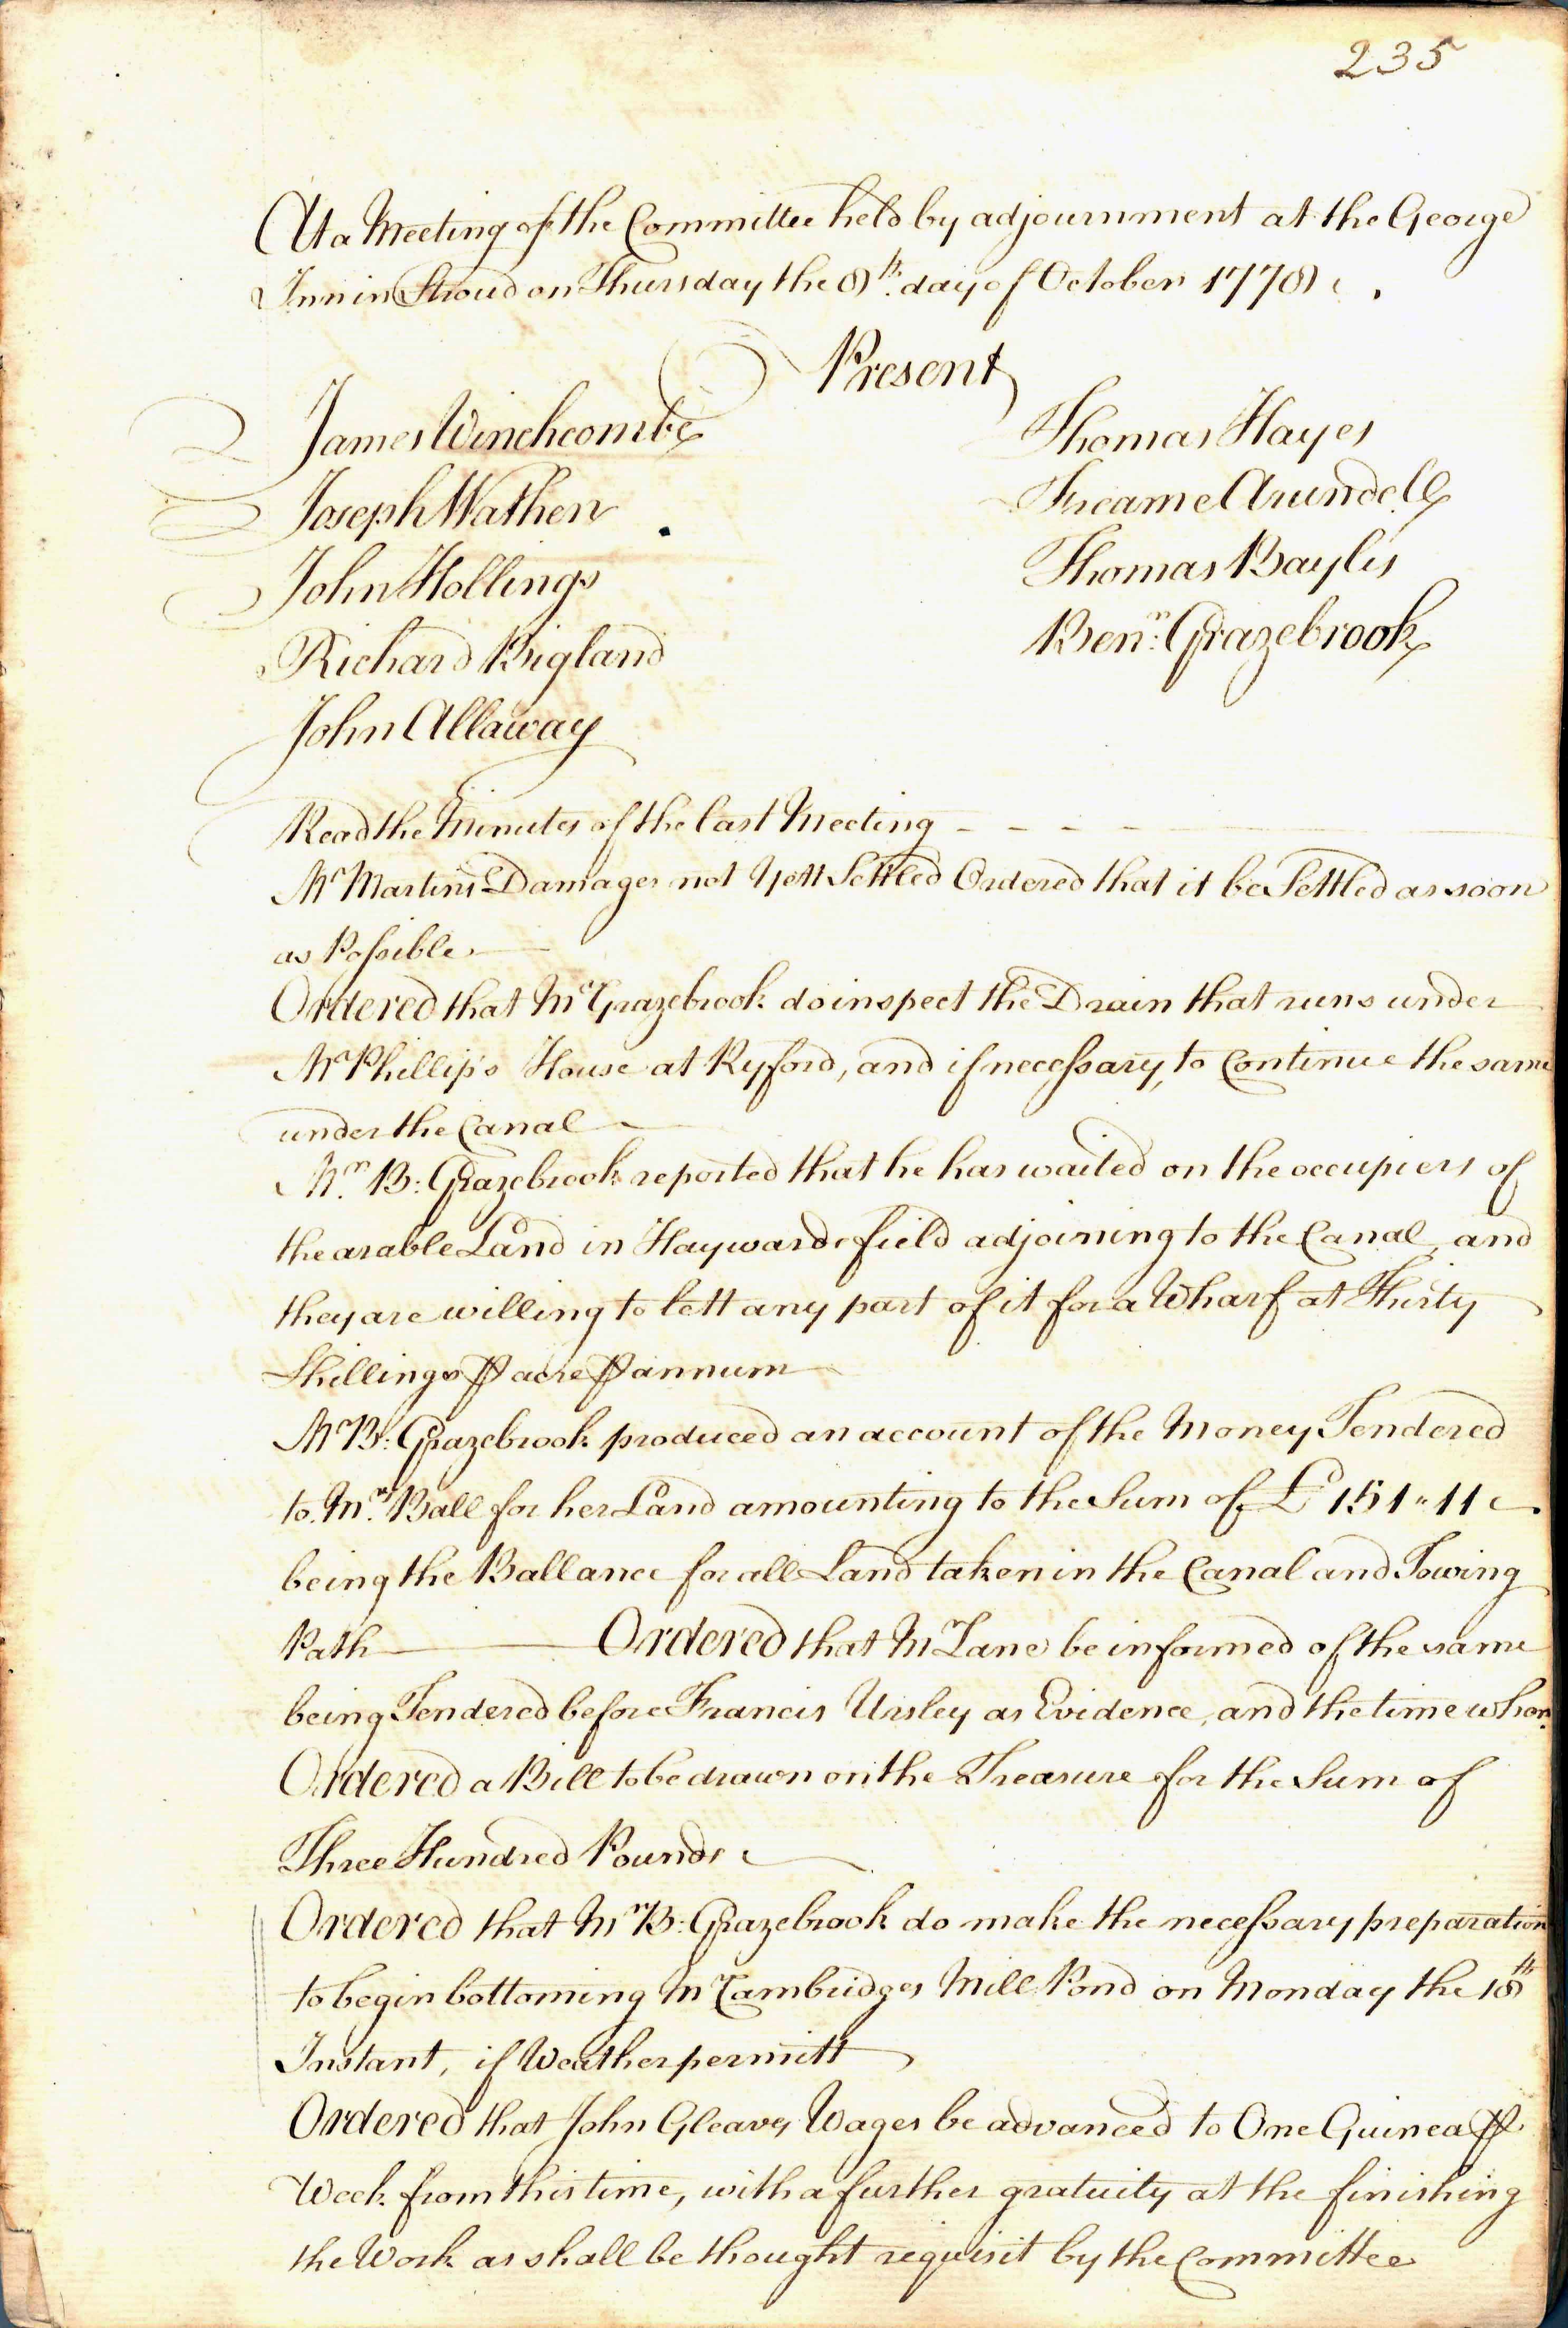 235
At a Meeting of the Committee held by adjournment at the George
Inn in Stroud on Thursday the 8th. day of October 1778
Present
James Winchcombe
Joseph Wathen
John Hollings
Richard Bigland
John Allaway
Thomas Hayes
Freame Arundell
Thomas Baylis
Benn: Grazebrook
Read the Minutes of the last Meeting - - - -
Mr Martins Damages not Yett Settled Ordered that it be Settled as soon
as Possible
Ordered that Mr Grazebrook do inspect the Drain that runs under
Mr Phillip's House at Ryford, and if necessary, to Continue the same
under the Canal
Mr. B: Grazebrook reported that he has waited on the occupiers of
the arable Land in Haywards field adjoining to the Canal, and
they are willing to lett any part of it for a Wharf at Thirty
Shillings ⅌ acre ⅌ annum
Mr B: Grazebrook produced an account of the Money Tendered
to Mrs. Ball for her Land amounting to the Sum of £151"11
being the Ballance for all Land taken in the Canal and Towing
Path — Ordered that Mr Lane be informed of the same
being Tendered before Francis Ursley as Evidence, and the time when.
Ordered a Bill to be drawn on the Treasure for the Sum of
Three Hundred Pounds
Ordered that Mr B: Grazebrook do make the necessary preparation
to begin bottoming Mr Cambridges Mill Pond on Monday the 18th
Instant, if Weather permitt
Ordered that John Gleaves Wages be advanced to One Guinea ⅌
Week from this time, with a further gratuity at the finishing
the Work as shall be thought requisit by the Committee